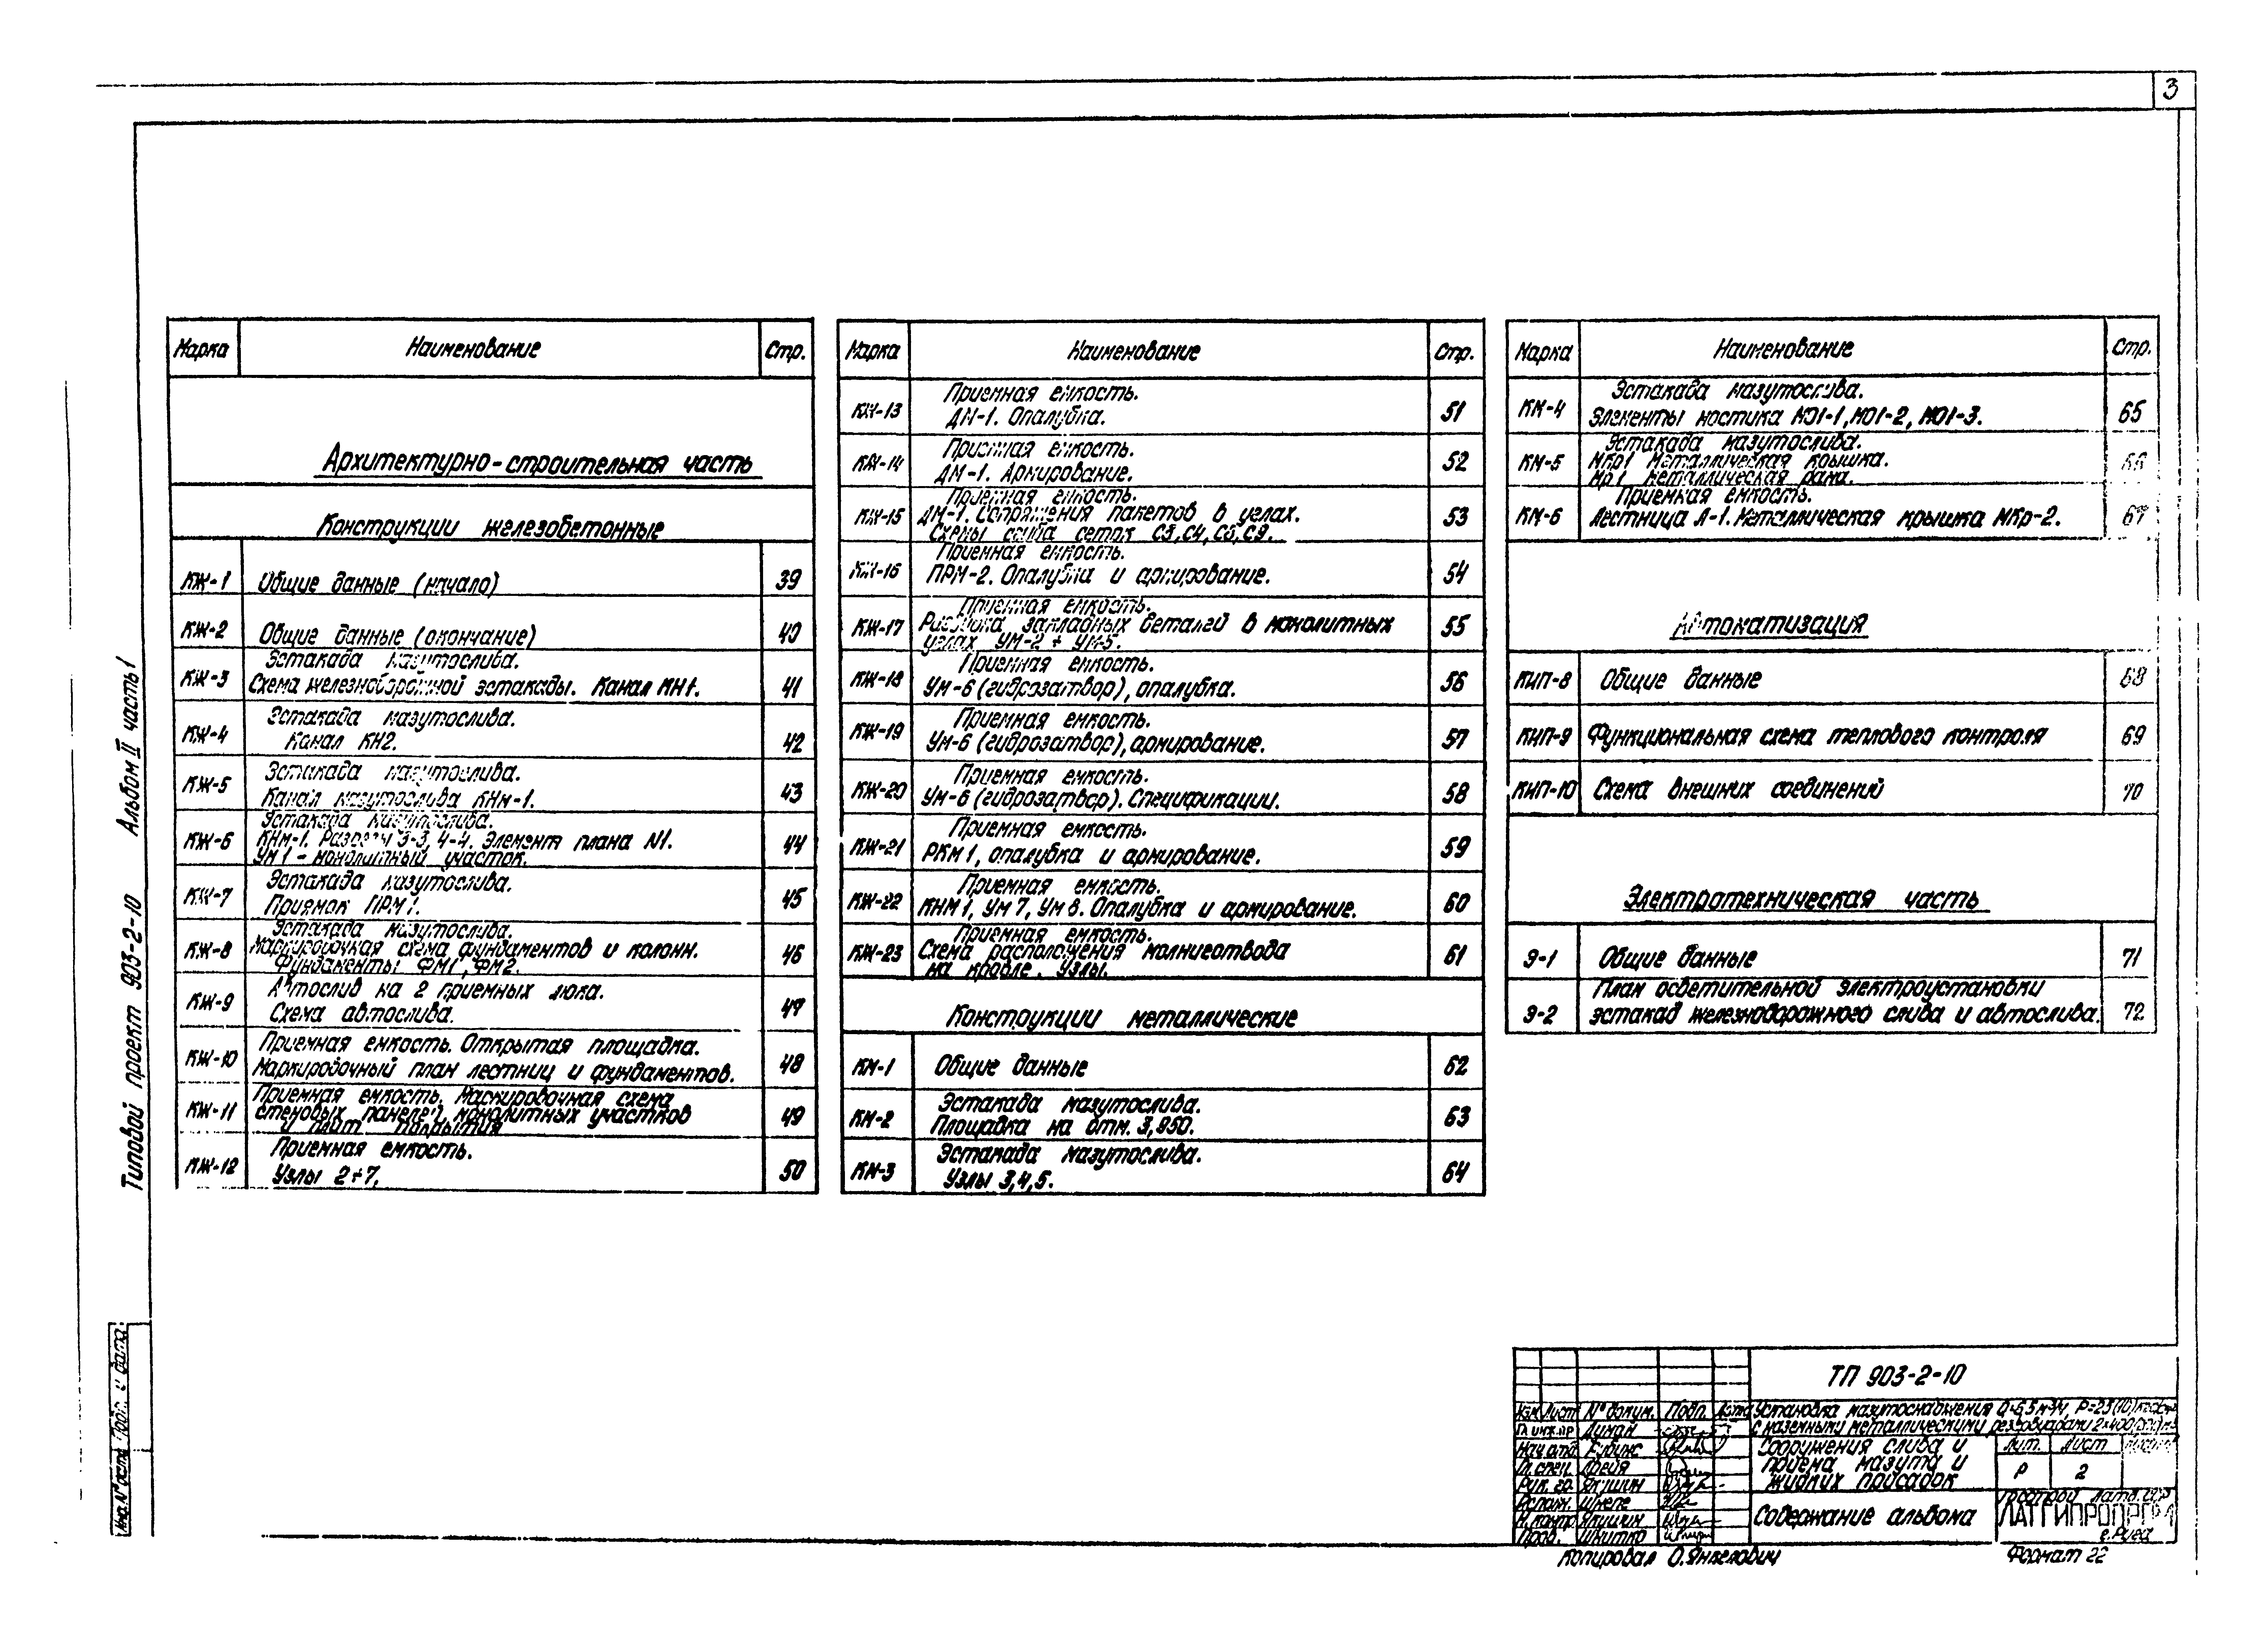 3
Типовой проект 903-2-10 Альбом II часть 1
Марка Наименование Стр.
Архитектурно-строительная часть
Конструкции железобетонные
КЖ-1 Общие данные (начало) 39
КЖ-2 Общие данные (окончание) 40
Эстакада мазутослива.
КЖ-3 Схема железнодорожной эстакады. Канал КН1. 41
Эстакада мазутослива.
КЖ-4 Канал КН2. 42
Эстакада мазутослива.
КЖ-5 Канал мазутослива КНм-1. 43
Эстакада мазутослива.
КЖ-6 КНм-1. Разрезы 3-3, 4-4. Элемент плана N1. 44
УМ1 - монолитный участок.
Эстакада мазутослива.
КЖ-7 Приямок ПРМ1. 45
Эстакада мазутослива.
КЖ-8 Маркировочная схема фундаментов и колонн. 46
Фундаменты ФМ1, ФМ2.
Автослив на 2 приемных люка.
КЖ-9 Схема автослива. 47
Приемная емкость. Открытая площадка.
КЖ-10 Маркировочный план лестниц и фундаментов. 48
Приемная емкость. Маркировочная схема
КЖ-11 стеновых панелей, монолитных участков 49
и плит покрытия
Приемная емкость.
КЖ-12 Узлы 2÷7. 50
Марка Наименование Стр.
Приемная емкость.
КЖ-13 ДМ-1. Опалубка. 51
Приемная емкость.
КЖ-14 ДМ-1. Армирование. 52
Приемная емкость.
КЖ-15 ДМ-1. Сопряжения пакетов в углах. 53
Схемы сгиба сеток С3, С4, С8, С9.
Приемная емкость.
КЖ-16 ПРМ-2. Опалубка и армирование. 54
Приемная емкость.
КЖ-17 закладных деталей в монолитных 55
углах УМ-2 ÷ УМ-5.
Приемная емкость.
КЖ-18 Ум-6 (гидрозатвор), опалубка. 56
Приемная емкость.
КЖ-19 Ум-6 (гидрозатвор), армирование. 57
Приемная емкость.
КЖ-20 Ум-6 (гидрозатвор). Спецификации. 58
Приемная емкость.
КЖ-21 РКМ1, опалубка и армирование. 59
Приемная емкость.
КЖ-22 КНМ1, Ум 7, Ум 8. Опалубка и армирование. 60
Приемная емкость.
КЖ-23 Схема расположения молниеотвода 61
на кровле. Узлы.
Конструкции металлические
КМ-1 Общие данные 62
Эстакада мазутослива.
КМ-2 Площадка на отм. 3,950. 63
Эстакада мазутослива.
КМ-3 Узлы 3,4,5. 64
Марка Наименование Стр.
Эстакада мазутослива.
КМ-4 Элементы мостика МО1-1, МО1-2, МО1-3. 65
Эстакада мазутослива.
КМ-5 МКр1 Металлическая крышка. 66
Мр1 Металлическая рама.
Приемная емкость.
КМ-6 Лестница Л-1. Металлическая крышка МКр-2. 67
Автоматизация
КИП-8 Общие данные 68
КИП-9 Функциональная схема теплового контроля 69
КИП-10 Схема внешних соединений 70
Электротехническая часть
Э-1 Общие данные 71
План осветительной электроустановки
Э-2 эстакад железнодорожного слива и автослива. 72
Инв. № Подп. и дата
ТП 903-2-10
Изм. Лист № докум. Подп. Дата
Установка мазутоснабжения
с наземными металлическими резервуарами
Гл. инж. пр. Думан
Нач. отд.
Гл. спец.
Рук. гр. Якушин
Исполн. Шмеле
Н. контр. Якушин
Пров. Шкитко
Сооружения слива и
приема мазута и
жидких присадок
Лит. Лист
Р 2
Содержание альбома
Госстрой Латв. ССР
ЛАТГИПРОПРОМ
г. Рига
Копировал О. Янкелович Формат 22